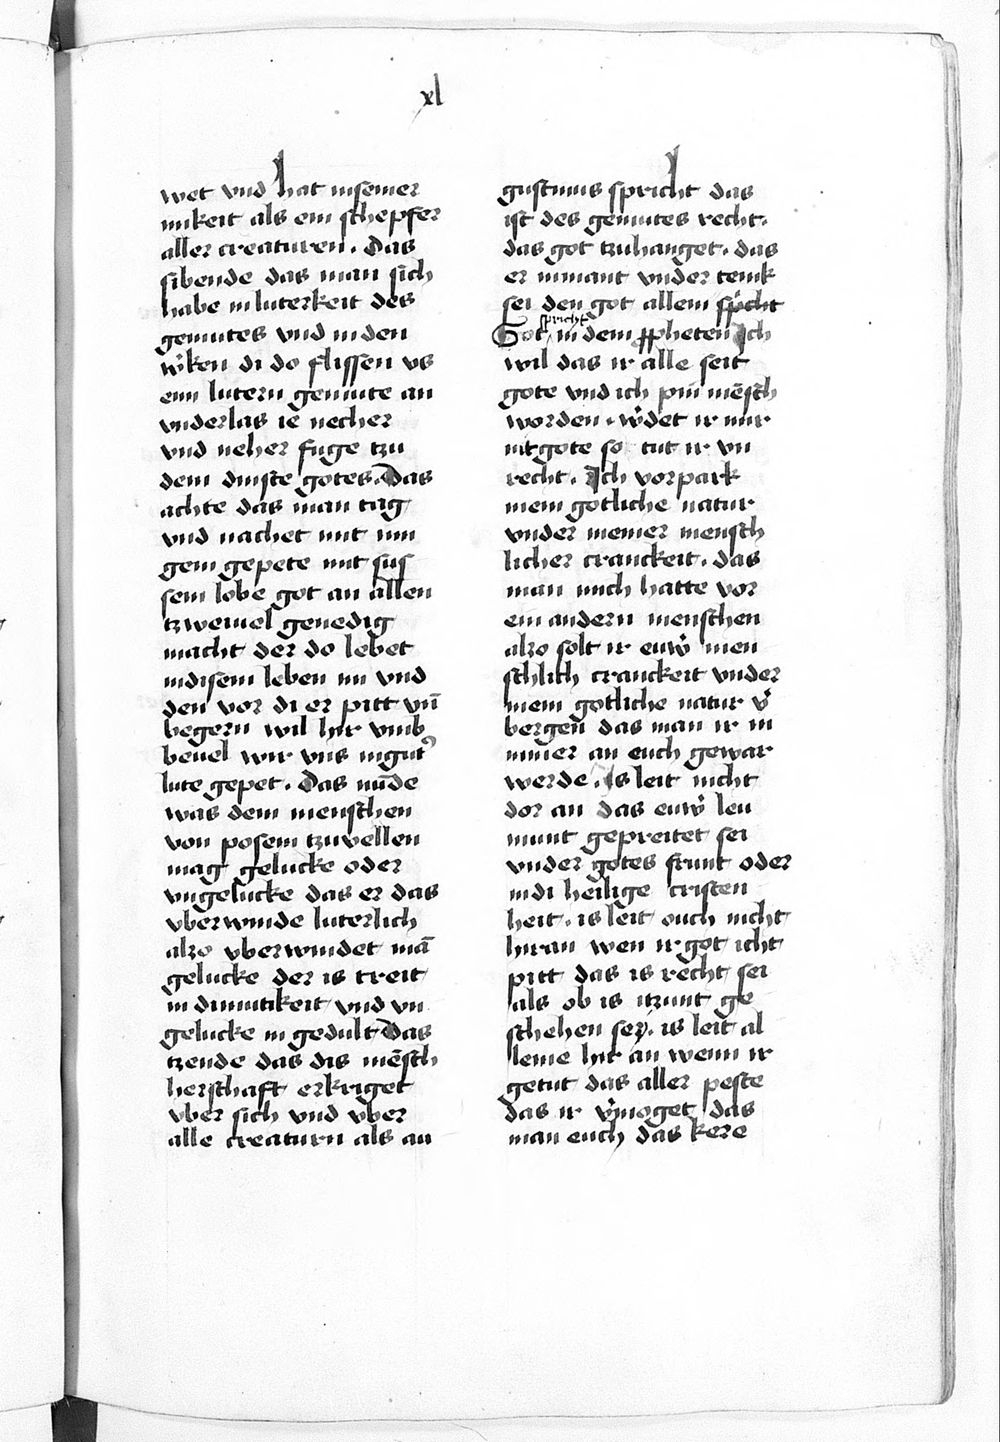 xl
wet vnd hat inseiner
nikeit als ein schepfer
aller creaturen. Das
sibende das man sich
habe inluterkeit des
gemutes vnd inden
w̓ken di do flissen vs
einn lutern gemute an
vnderlas ie necher
vnd neher fuge tzu
dem dinste gotes. Das
achte das man tag
vnd nachet mit inn
gem gepete mit sus
sem lobe got an allen
tzweiuel genedig
macht der do lebet
indisem leben im vnd
den vor di er pitt vn̄
begern wil hir vmb
beuel wir vns ingut᾽
lute gepet. Das nūde
was dem menschen
von posem tzuvellen
mag gelucke oder
vngelucke das er das
vberwinde luterlich
alzo vberwindet mā
gelucke der is treit
in dimutikeit vnd vn
gelucke in gedult Das
tzende das dis mēsch
herschaft erkriget
vber sich vnd vber
alle creaturn als au
gustinus spricht das
ist des gemutes recht.
das got tzuhanget. das
er nimant vnder tenik
sei den got allein sp̓cht
spricht
Got in dem ꝓpheten Ich
wil das ir alle seit
gote vnd ich pin mēsch
worden. w̓det ir mir
nit gote so tut ir vn
recht. Ich vorpark
mein gotliche natur
vnder meiner mensch
licher cranckeit. das
man mich hatte vor
ein andern menschen
alzo solt ir euw̓ men
schlich cranckeit vnder
mein gotliche natur v̓
bergen das man ir in
nimer an euch gewar
werde. Is leit nicht
dor an das euw̓ leu
munt gepreitet sei
vnder gotes frunt oder
indi heilige cristen
heit. is leit ouch nicht
hiran wen ir got icht
pitt das is recht sei
als ob is itzunt ge
schehen sey. is leit al
leine hir an wenn ir
getut das aller peste
das ir v̓moget das
man euch das kere